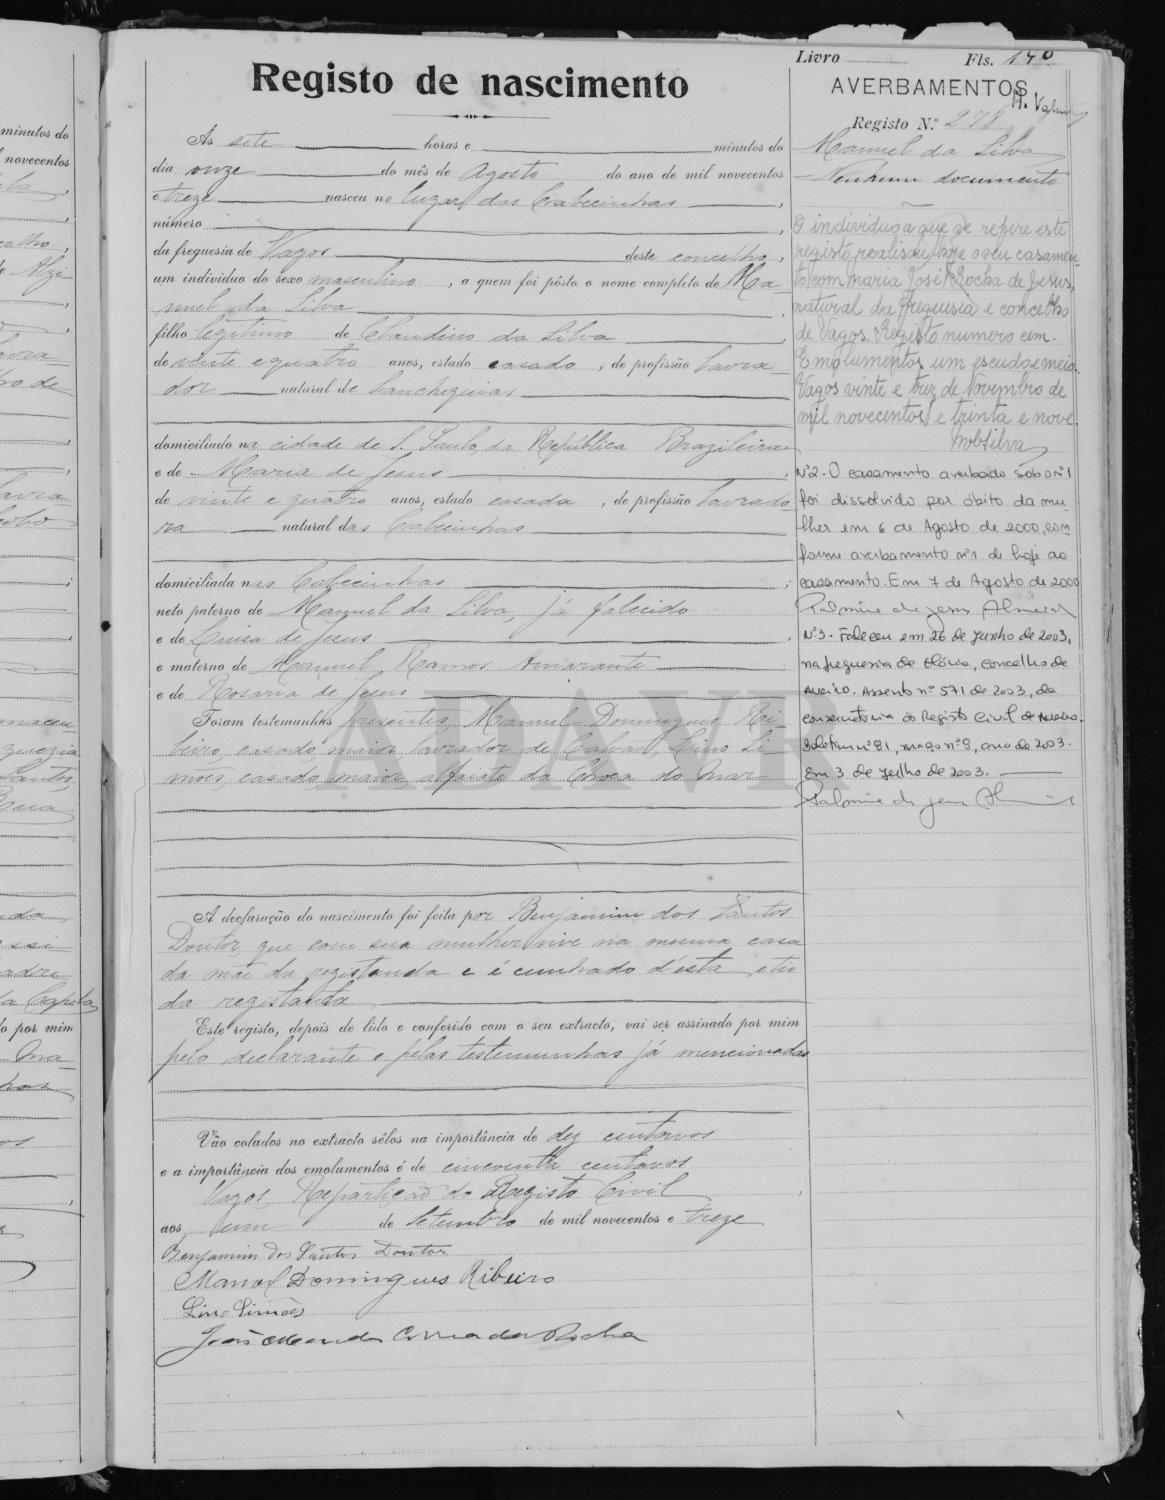 Registo de nascimento
Às sete horas e minutos do
dia onze do mês de Agosto do ano de mil novecentos
e treze nasceu no lugar das Cabecinhas ,
número ,
da freguesia de Vagos deste concelho ,
um individuo do sexo masculino , a quem foi pôsto o nome completo de Ma-
nuel da Silva
filho legitimo de Claudino da Silva
de vinte e quatro anos, estado casado , de profissão lavra-
dor natural de Sanchequias
domiciliado na cidade de S. Paulo, da República Brazileira
e de Maria de Jesus
de vinte e quatro anos, estado casada , de profissão lavrado
ra natural das Cabecinhas
domiciliada nas Cabecinhas ;
neto paterno de Manuel da Silva, já falecido
e de Luisa de Jesus ,
e materno de Manuel Ramos Amarante
e de Rosaria de Jesus
Foram testemunhas presentes Manuel Domingues Ri-
beiro, casado, maior, lavrador de Calvão, Lino Si-
mões, casado, maior, alfaiate da Choca do Mar
A declaração do nascimento foi feita por Benjamim dos Santos
Doutor, que com sua mulher vive na mesma casa
da mãe da registanda e é cunhado d'esta e tio
da registanda
Este registo, depois de lido e conferido com o seu extracto, vai ser assinado por mim
pelo declarante e pelas testemunhas já mencionadas
Vão colados no extracto sêlos na importância de dez centavos
e a importância dos emolumentos é de cincoenta centavos
Vagos, Repartição do Registo Civil
aos um de Setembro de mil novecentos e treze
Benjamim dos Santos Doutor
Manoel Domingues Ribeiro
Lino Simões
João Mendes Correia da Rocha
Livro Fls. 140
AVERBAMENTOS
Registo N.º 278
Manuel da Silva
Nenhum documento
O individuo a que se refere este
registo, realisou hoje o seu casamen-
to com Maria José Rocha de Jesus,
natural da freguesia e concelho
de Vagos. Registo numero cem.
Emolumentos um escudo e meio.
Vagos vinte e trez de Novembro de
mil novecentos e trinta e nove.
Nº2 - O casamento averbado sob o nº1
foi dissolvido por óbito da mu-
lher em 6 de Agosto de 2000, con
forme averbamento nº1 de hoje ao
casamento. Em 7 de Agosto de 2000
Palmira de Jesus Almeida
Nº3 - Faleceu em 26 de Junho de 2003,
na freguesia de Glória, concelho de
Aveiro. Assento nº 571 de 2003, da
conservatória do Registo Civil de Aveiro.
Boletim nº 81, maço nº 8, ano de 2003.
Em 3 de Julho de 2003.
Palmira de Jesus
ADAVR
minutos do
novecentos
por mim